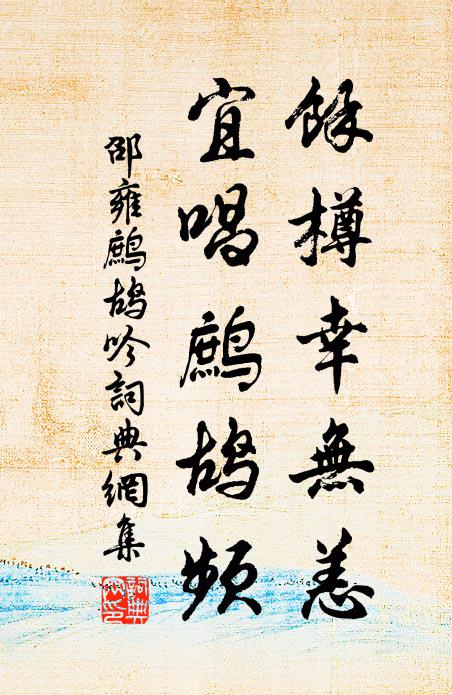 餘樽幸無恙
宜唱鷓鴣頻
邵雍鷓鴣吟詞典網集